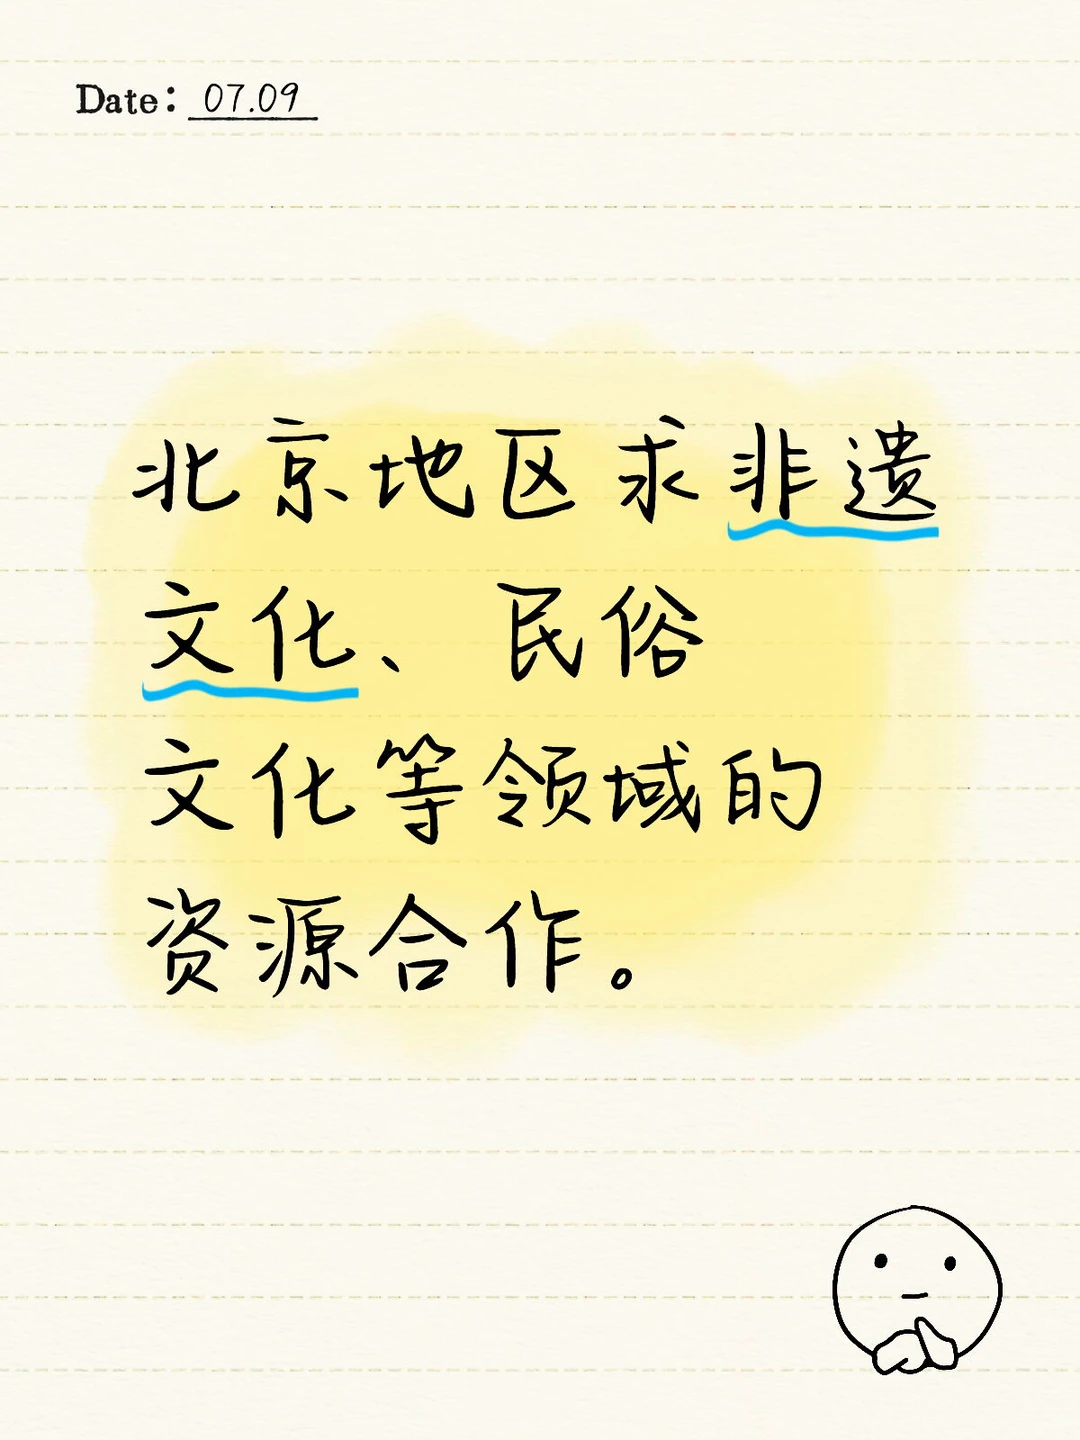 Date: 07.09
北京地区求非遗
文化、民俗
文化等领域的
资源合作。